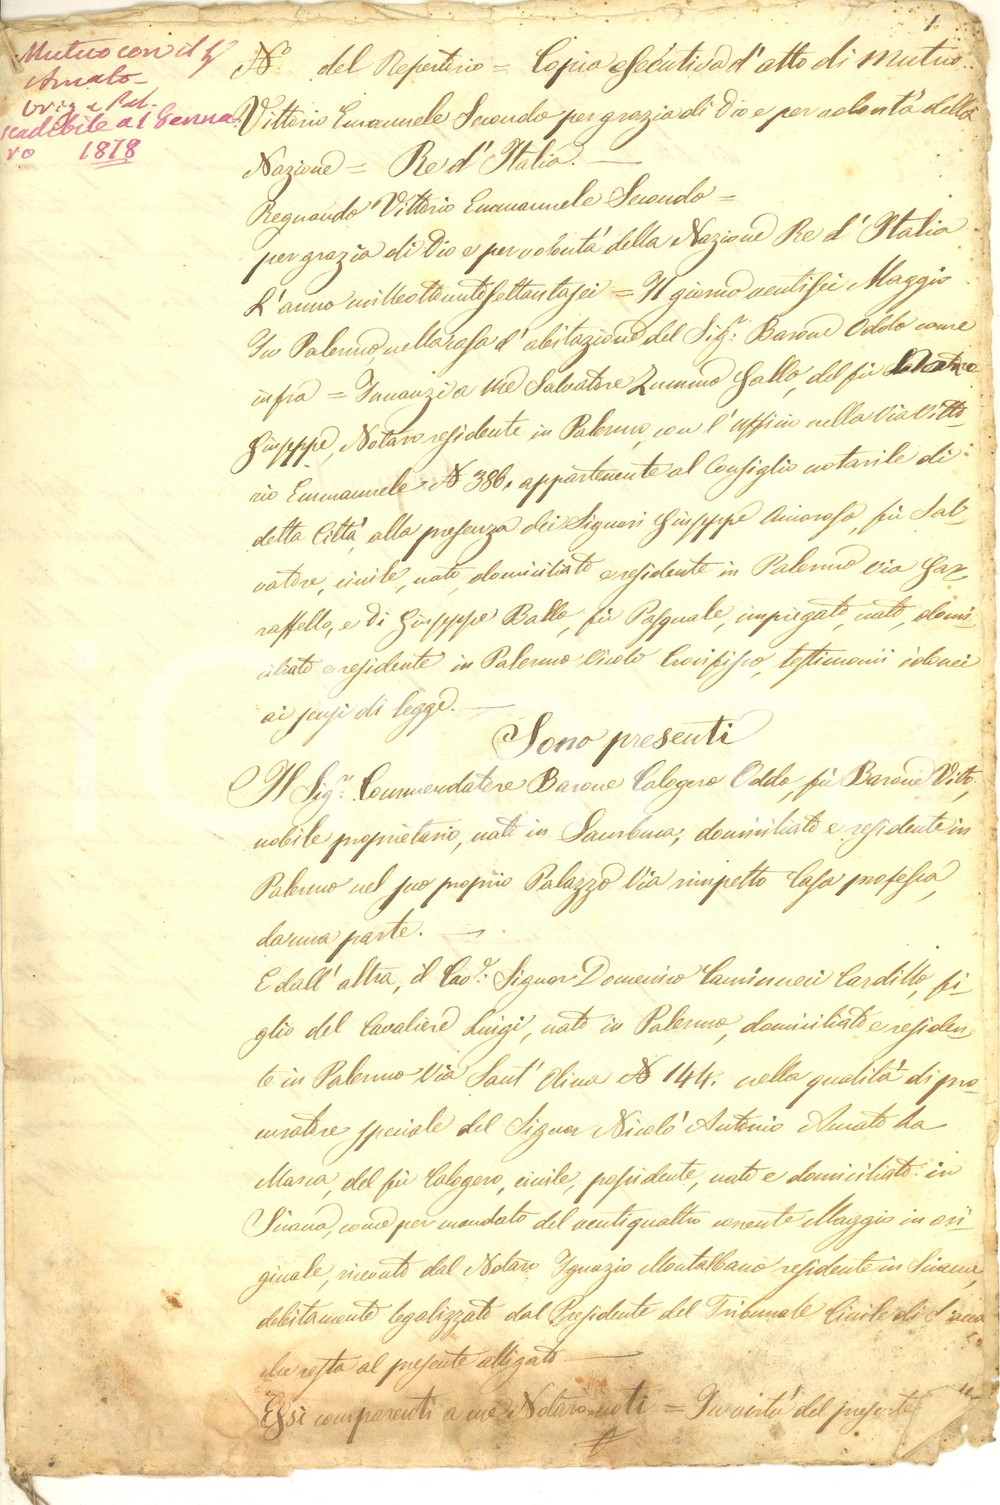 1
Mutuo con il Sr
Amato
Orig e Pal.
scadibile al 1 Genna
ro 1878
No del Repertorio = Copia esecutiva d'atto di mutuo
Vittorio Emanuele Secondo per grazia di Dio e per volontà della
Nazione = Re d'Italia. —
Regnando Vittorio Emmanuele Secondo =
per grazia di Dio e per volontà della Nazione Re d'Italia
L'anno milleottocentosettantasei = Il giorno ventisei Maggio
In Palermo, nella casa d'abitazione del Sigr: Barone Oddo come
infra = Innanzi a me Salvatore Zummo Gallo, del fu
Giuseppe, Notaro residente in Palermo, con l'officio nella via Vitto
rio Emmanuele No 386, appartenente al Consiglio notarile di
detta Città, alla presenza dei Signori Giuseppe Amoroso, fu Sal-
vatore, civile, nato, domiciliato e residente in Palermo via Gar-
raffello, e di Giuseppe Ballo, fu Pasquale, impiegato, nato, domi-
ciliato e residente in Palermo Vicolo Crocifisso, testimonii idonei
ai sensi di legge. —
Sono presenti
Il Sigr: Commendatore Barone Calogero Oddo, fu Barone Vitto,
nobile proprietario, nato in Sambuca, domiciliato e residente in
Palermo nel suo proprio Palazzo Via rimpetto Casa professa,
da una parte. —
E dall'altra, il Cavr: Signor Domenico Caminneci Cardillo, fi-
glio del Cavaliere Luigi, nato in Palermo, domiciliato e residen-
te in Palermo Via Sant'Oliva No 144. nella qualità di pro-
curatore speciale del Signor Nicolò Antonio Amato La
Marca, del fu Calogero, civile, possidente, nato e domiciliato in
Sciacca, come per mandato del ventiquattro corrente Maggio in ori-
ginale, ricevuto dal Notaro Ignazio Montalbano residente in Sciacca,
debitamente legalizzato dal Presidente del Tribunale Civile di Sciacca
che resta al presente alligato —
Essi comparenti a me Notaro noti = In virtù del presente